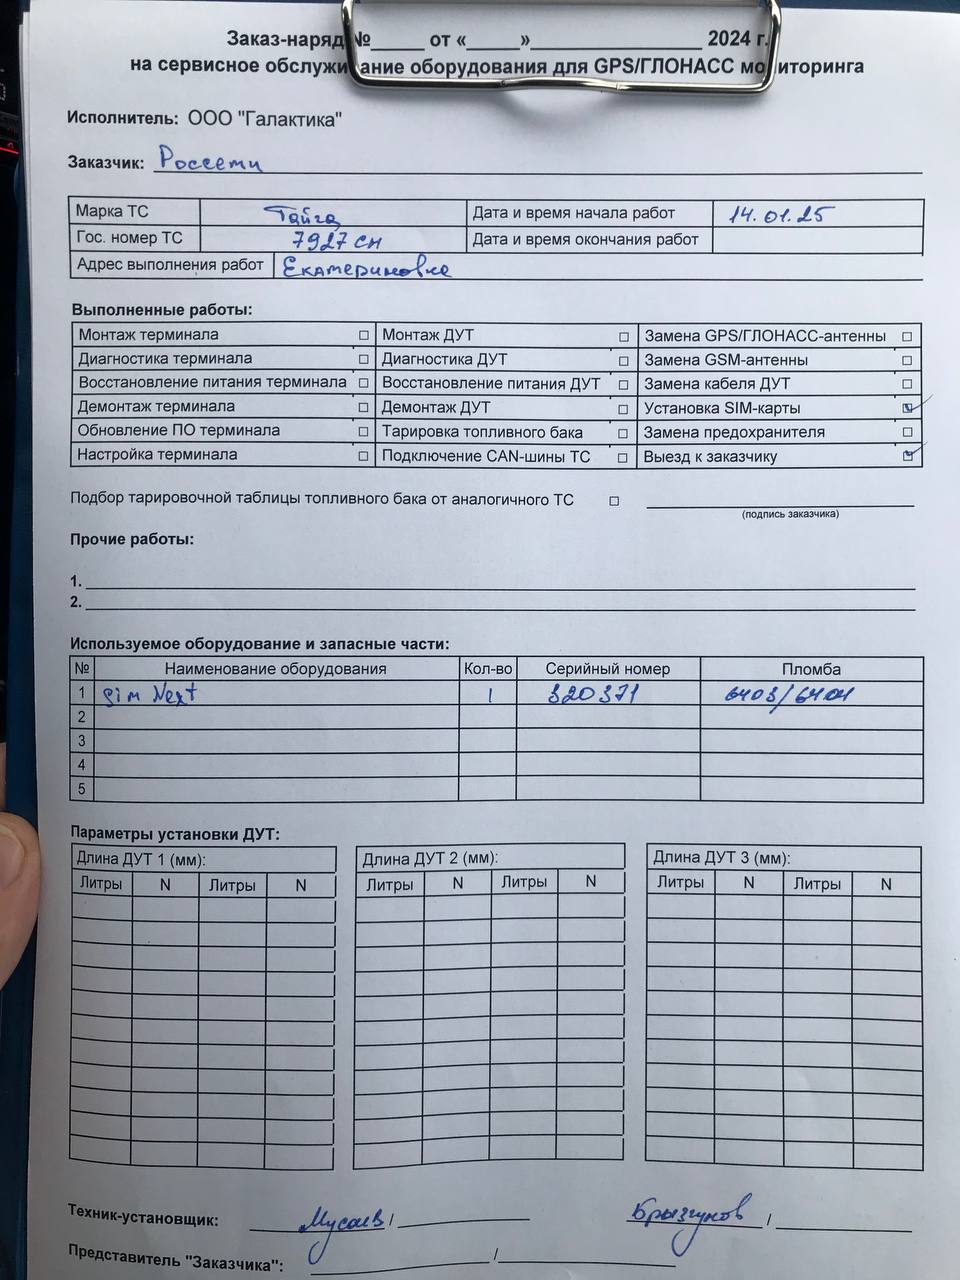 Заказ-наряд №_____ от «_____»________________ 2024 г.
на сервисное обслуживание оборудования для GPS/ГЛОНАСС мониторинга
Исполнитель: ООО "Галактика"
Заказчик: Россети
Марка ТС Тайга Дата и время начала работ 14.01.25
Гос. номер ТС 7927 СН Дата и время окончания работ
Адрес выполнения работ Екатериновка
Выполненные работы:
Монтаж терминала ☐ Монтаж ДУТ ☐ Замена GPS/ГЛОНАСС-антенны ☐
Диагностика терминала ☐ Диагностика ДУТ ☐ Замена GSM-антенны ☐
Восстановление питания терминала ☐ Восстановление питания ДУТ ☐ Замена кабеля ДУТ ☐
Демонтаж терминала ☐ Демонтаж ДУТ ☐ Установка SIM-карты ☑
Обновление ПО терминала ☐ Тарировка топливного бака ☐ Замена предохранителя ☐
Настройка терминала ☐ Подключение CAN-шины ТС ☐ Выезд к заказчику ☑
Подбор тарировочной таблицы топливного бака от аналогичного ТС ☐
(подпись заказчика)
Прочие работы:
1.
2.
Используемое оборудование и запасные части:
№ Наименование оборудования Кол-во Серийный номер Пломба
1 Sim Next 1 320371 6403/6404
2
3
4
5
Параметры установки ДУТ:
Длина ДУТ 1 (мм): Длина ДУТ 2 (мм): Длина ДУТ 3 (мм):
Литры N Литры N Литры N Литры N Литры N Литры N
Техник-установщик: Мусаев / Брызгунов /
Представитель "Заказчика": /